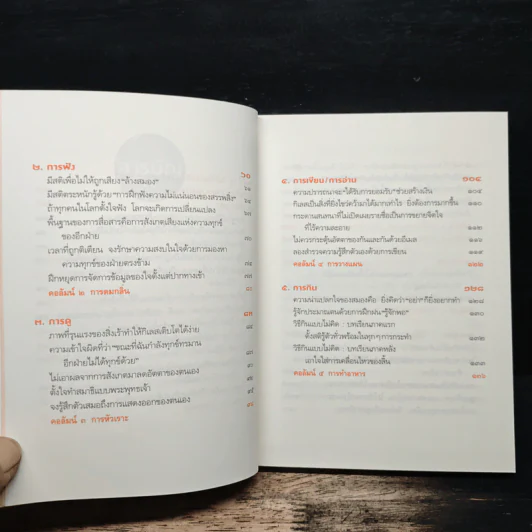 ๒. การฟัง ๖๐
มีสติเพื่อไม่ให้ถูกเสียง “ล้างสมอง” ๖๑
มีสติตระหนักรู้ด้วย “การฝึกฟังความไม่แน่นอนของสรรพสิ่ง”
ถ้าทุกคนในโลกตั้งใจฟัง โลกจะเกิดการเปลี่ยนแปลง
พื้นฐานของการสื่อสารคือการสังเกตเสียงแห่งความทุกข์
ของอีกฝ่าย
เวลาที่ถูกติเตียน จงรักษาความสงบในใจด้วยการมองหา
ความทุกข์ของฝ่ายตรงข้าม
ฝึกหยุดการจัดการข้อมูลของใจตั้งแต่ปากทางเข้า
คอลัมน์ ๒ การดมกลิ่น
๓. การดู
ภาพที่รุนแรงของสิ่งเร้าทำให้กิเลสเติบโตได้ง่าย
ความเข้าใจผิดที่ว่า “ขณะที่ฉันกำลังทุกข์ทรมาน
อีกฝ่ายไม่ได้ทุกข์ด้วย”
ไม่เอาผลจากการสังเกตมาลดอัตตาของตนเอง
ตั้งใจทำสมาธิแบบพระพุทธเจ้า
จงรู้สึกตัวเสมอถึงการแสดงออกของตนเอง
คอลัมน์ ๓ การหัวเราะ
๔. การเขียน/การอ่าน ๑๐๔
ความปรารถนาจะ “ได้รับการยอมรับ” ช่วยสร้างเงิน ๑๐๕
กิเลสเป็นสิ่งที่ยิ่งไขว่คว้ามาได้มากเท่าไร ยิ่งต้องการมากขึ้น
กระดานสนทนาที่ไม่เปิดเผยรายชื่อเป็นการขยายจิตใจ
ที่ไร้ความละอาย
ไม่ควรกระตุ้นอัตตาของกันและกันด้วยอีเมล
ลองสำรวจความรู้สึกตัวเองด้วยการเขียน
คอลัมน์ ๔ การวางแผน ๑๒๒
๕. การกิน ๑๒๘
ความน่าแปลกใจของสมองคือ ยิ่งคิดว่า “อย่า” ก็ยิ่งอยากทำ
รู้จักประมาณตนด้วยการฝึกฝน “รู้จักพอ”
วิธีกินแบบไม่คิด : บทเรียนภาคแรก
ตั้งสติรู้ตัวทั่วพร้อมในทุกๆ การกระทำ
วิธีกินแบบไม่คิด : บทเรียนภาคหลัง
เอาใจใส่การเคลื่อนไหวของลิ้น
คอลัมน์ ๕ การทำอาหาร